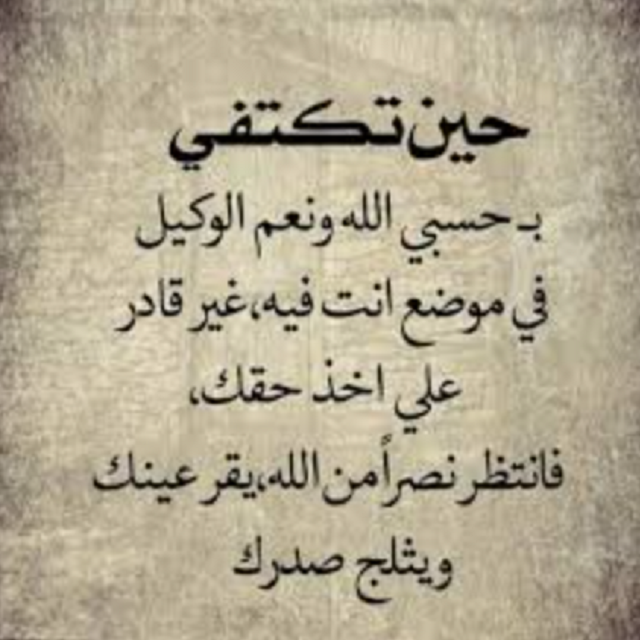 حين تكتفي
بـ حسبي الله ونعم الوكيل
في موضع انت فيه،غير قادر
علي اخذ حقك،
فانتظر نصراً من الله،يقر عينك
ويثلج صدرك